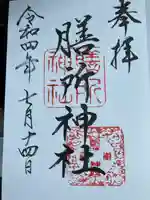 奉拝
膳所神社
令和四年七月十四日